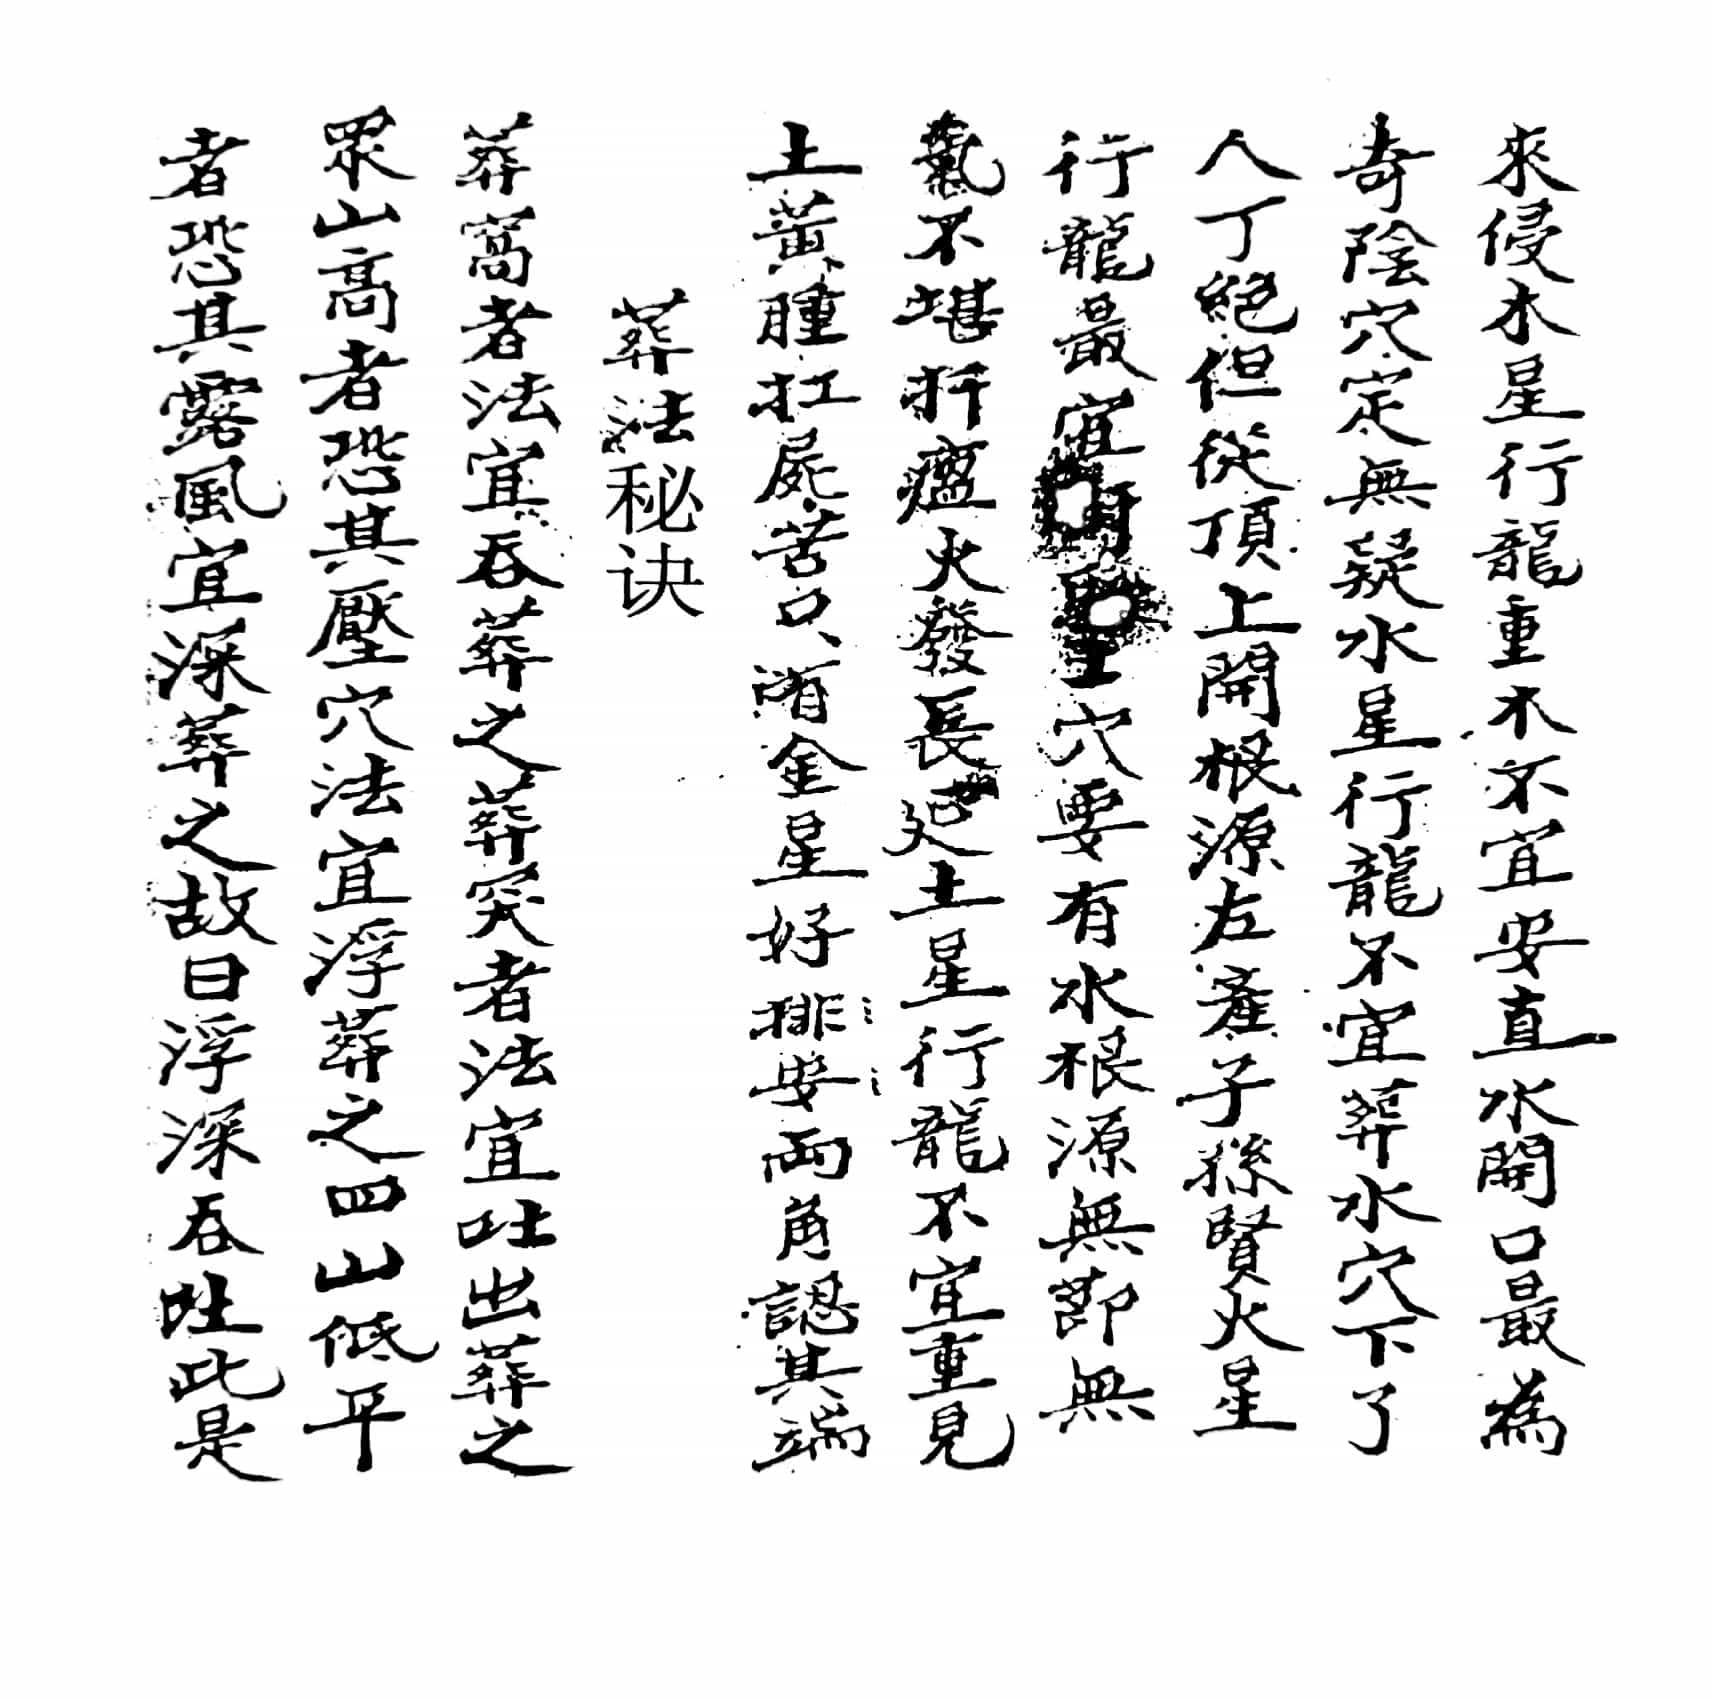 來侵木星行龍重木不宜安直水開口最為
奇陰穴定無疑水星行龍不宜葬水穴下了
人丁絕但從頂上開根源左產子孫賢火星
行龍最宜穴要有水根源無即無
氣不堪扦瘟火發長土星行龍不宜重見
土黃腫扛屍苦只消金星好排安兩角認其端
葬法秘诀
葬窩者法宜吞葬之葬突者法宜吐出葬之
眾山高者恐其壓穴法宜浮葬之四山低平
者恐其露風宜深葬之故曰浮深吞吐此是